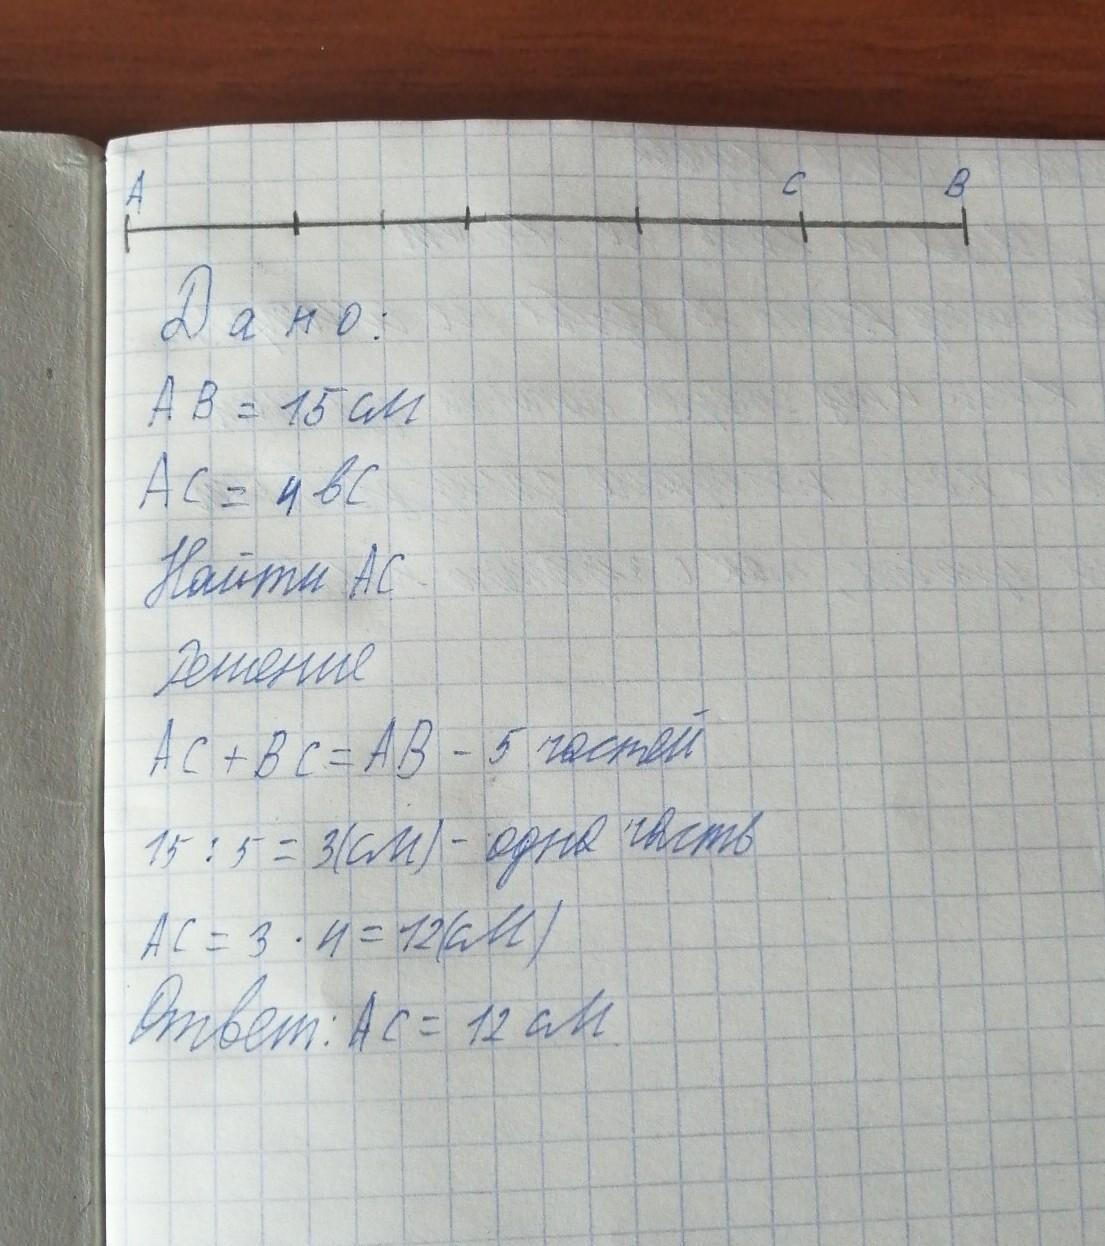 A C B
Дано:
AB = 15 см
AC = 4 BC
Найти AC
Решение
AC + BC = AB - 5 частей
15 : 5 = 3(см) - одна часть
AC = 3 · 4 = 12(см)
Ответ: AC = 12 см.